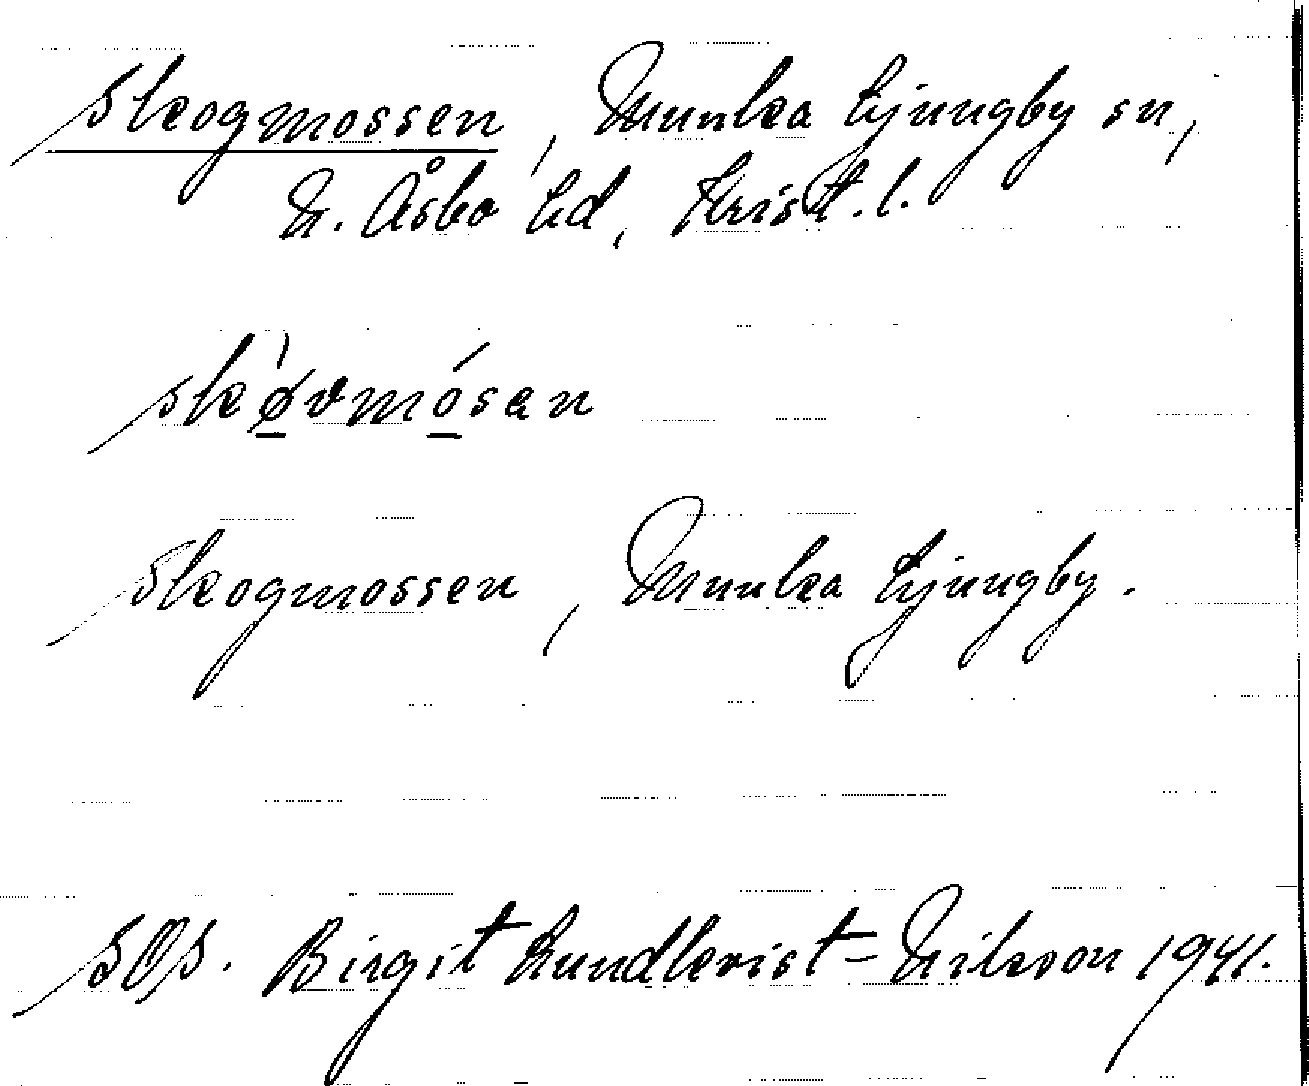 Skogmossen, Munka Ljungby sn,
N. Åsbo hd, Krist. l.
skø̱vmó̱san
Skogmossen, Munka Ljungby.
SOS. Birgit Lundkvist-Nilsson 1941.